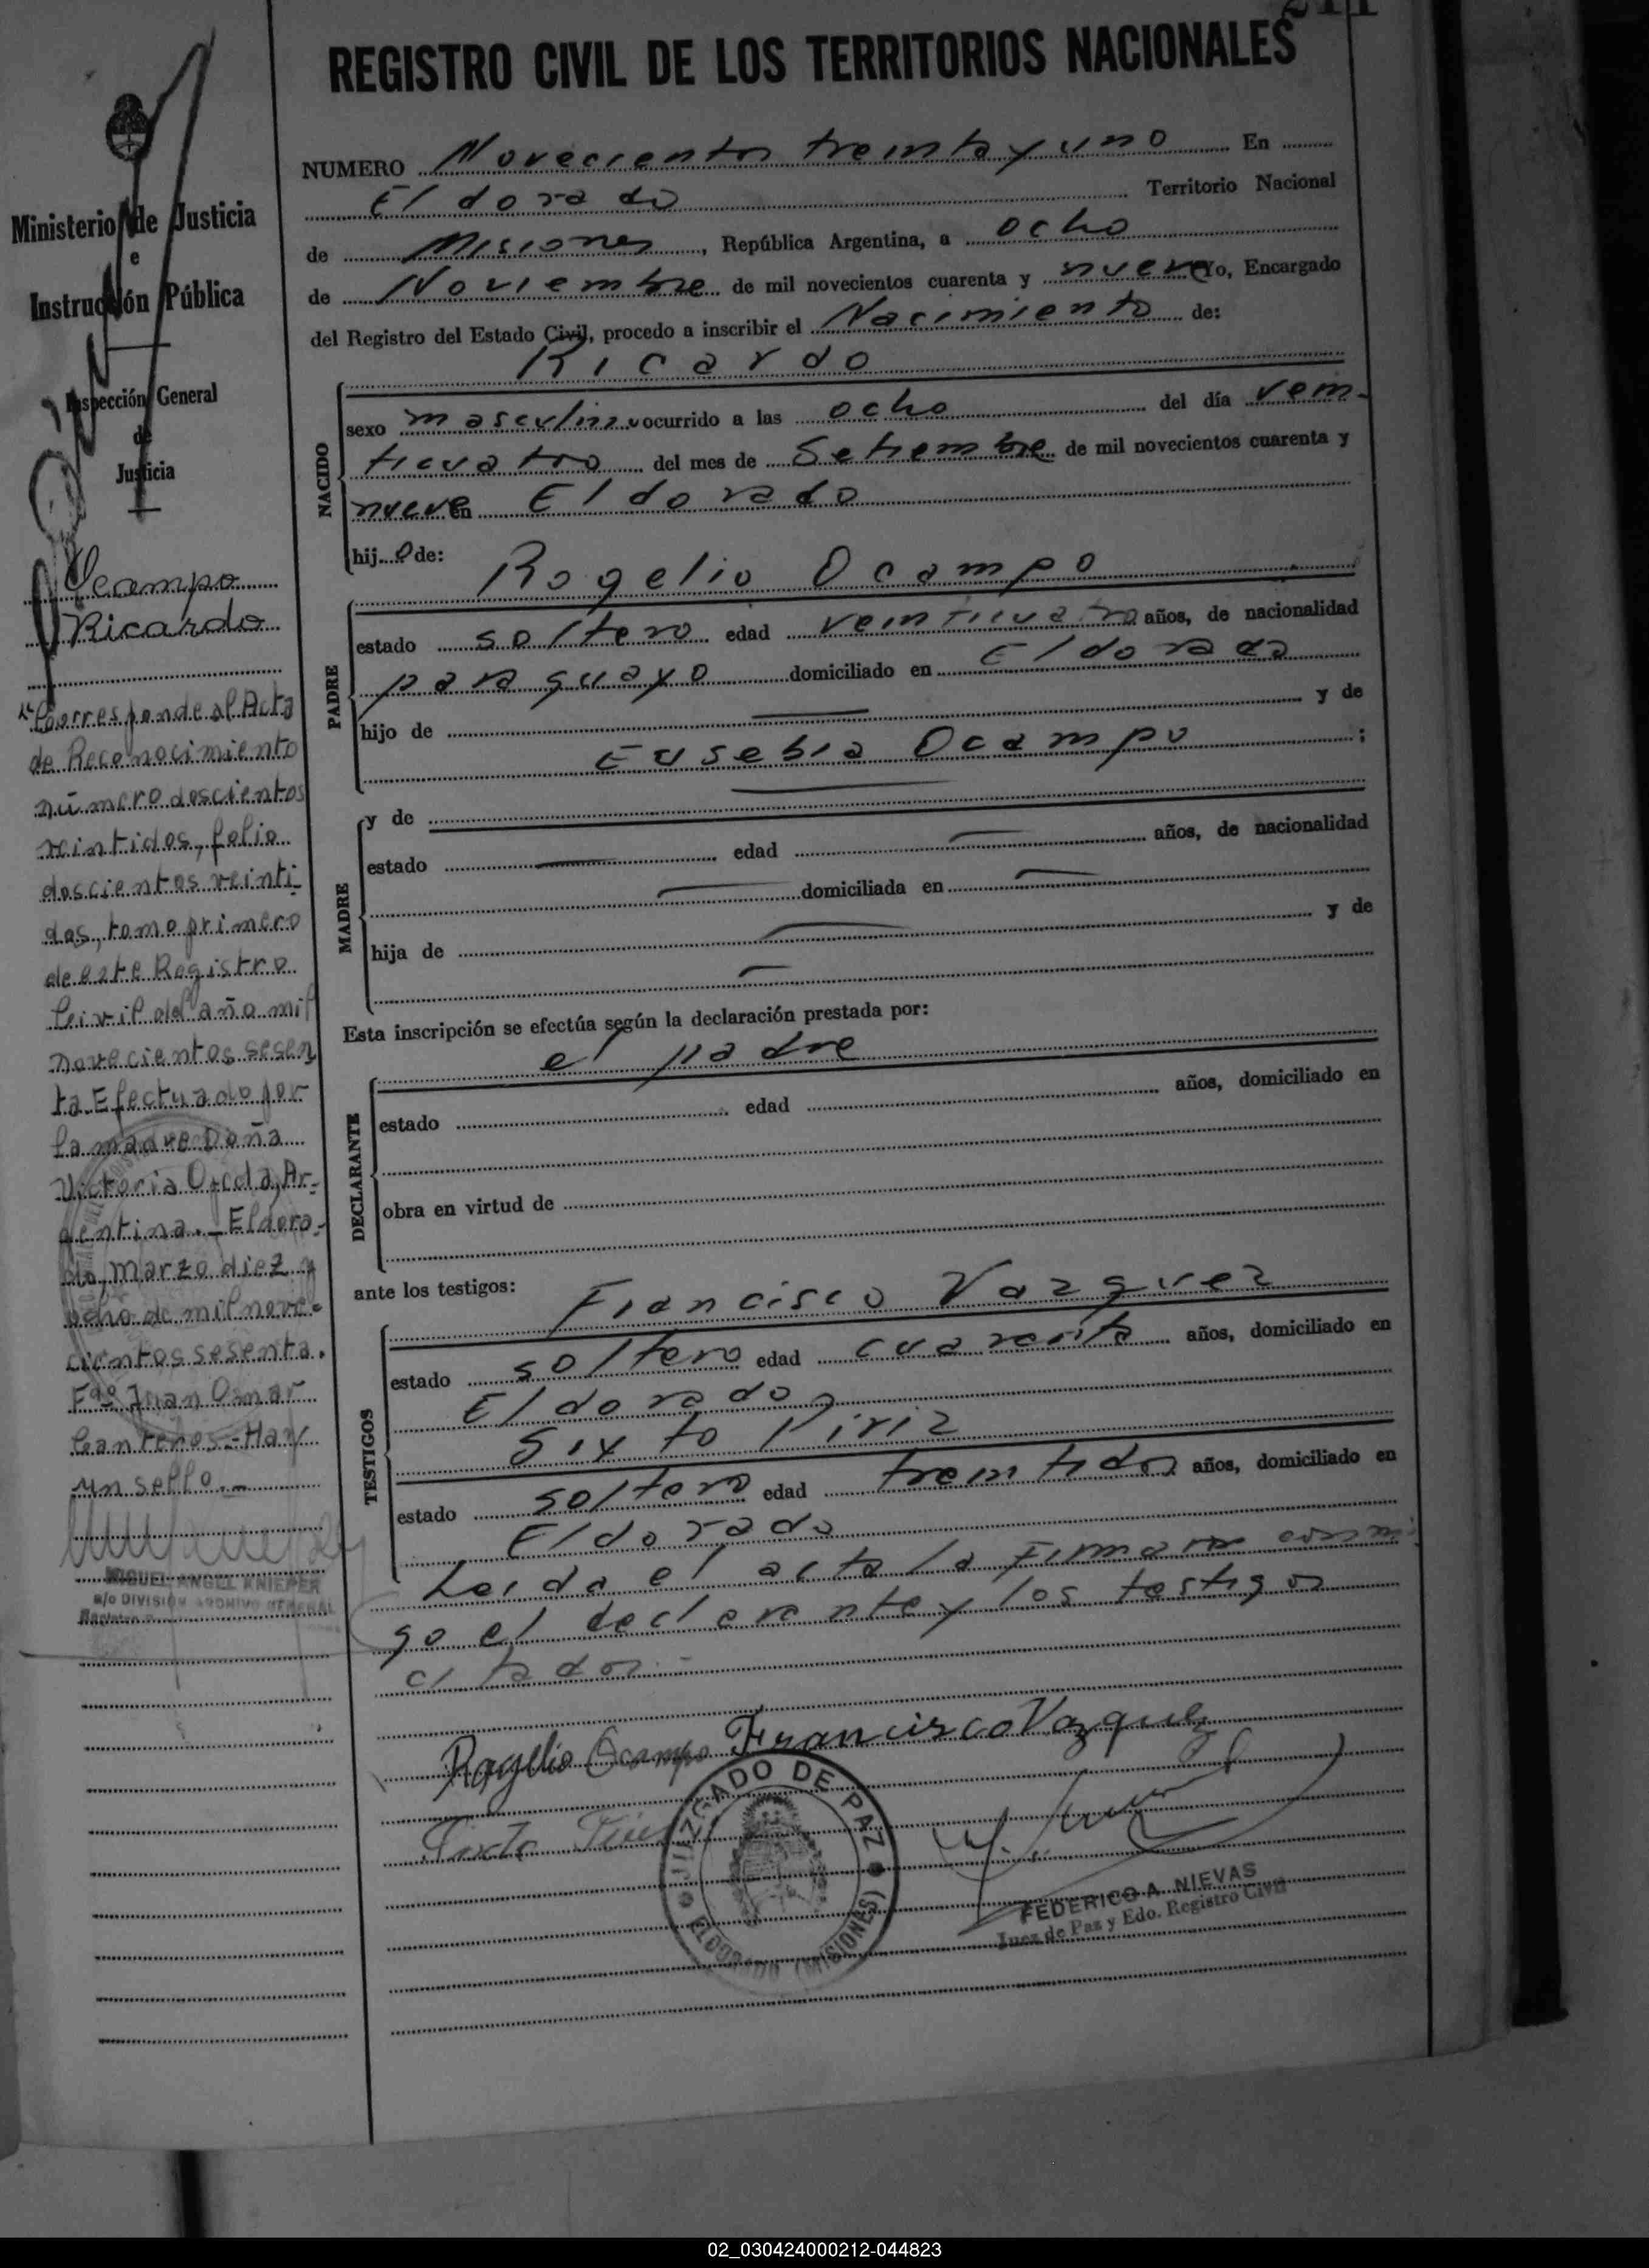 REGISTRO CIVIL DE LOS TERRITORIOS NACIONALES
Ministerio de Justicia
e
Instrucción Pública
Inspección General
de
Justicia
Ocampo
Ricardo
"Corresponde al Acta
de Reconocimiento
número doscientos
veintidos, folio
doscientos veinti
dos, tomo primero
de este Registro
Civil del año mil
novecientos sesen
ta Efectuado por
la madre Doña
Victoria Ar-
gentina._ Eldora-
do, Marzo diez y
ocho de mil nove-
cientos sesenta.
Fdo Juan Omar
Hay
un sello._
MIGUEL ANGEL KNIEPER
a/c DIVISIÓN ARCHIVO GENERAL
NUMERO Novecientos treinta y uno En
Eldorado Territorio Nacional
de Misiones, República Argentina, a ocho
de Noviembre de mil novecientos cuarenta y nueve Yo, Encargado
del Registro del Estado Civil, procedo a inscribir el Nacimiento de:
Ricardo
NACIDO
sexo masculino ocurrido a las ocho del día vein-
ticuatro del mes de Setiembre de mil novecientos cuarenta y
nueve en Eldorado
hijo de: Rogelio Ocampo
PADRE
estado soltero edad veinticuatro años, de nacionalidad
paraguayo domiciliado en Eldorado
hijo de y de
Eusebia Ocampo ;
y de
MADRE
estado edad años, de nacionalidad
domiciliada en
hija de y de
Esta inscripción se efectúa según la declaración prestada por:
el padre
DECLARANTE
estado edad años, domiciliado en
obra en virtud de
ante los testigos: Francisco Vazquez
TESTIGOS
estado soltero edad cuarenta años, domiciliado en
Eldorado
Sixto Piriz
estado soltero edad treintidos años, domiciliado en
Eldorado
Leida el acta la firmaron conmi
go el declarante y los testigos
citados.-
Rogelio Ocampo Francisco Vazquez
Sixto
JUZGADO DE PAZ
ELDORADO (MISIONES)
FEDERICO A. NIEVAS
Juez de Paz y Edo. Registro Civil
02_030424000212-044823